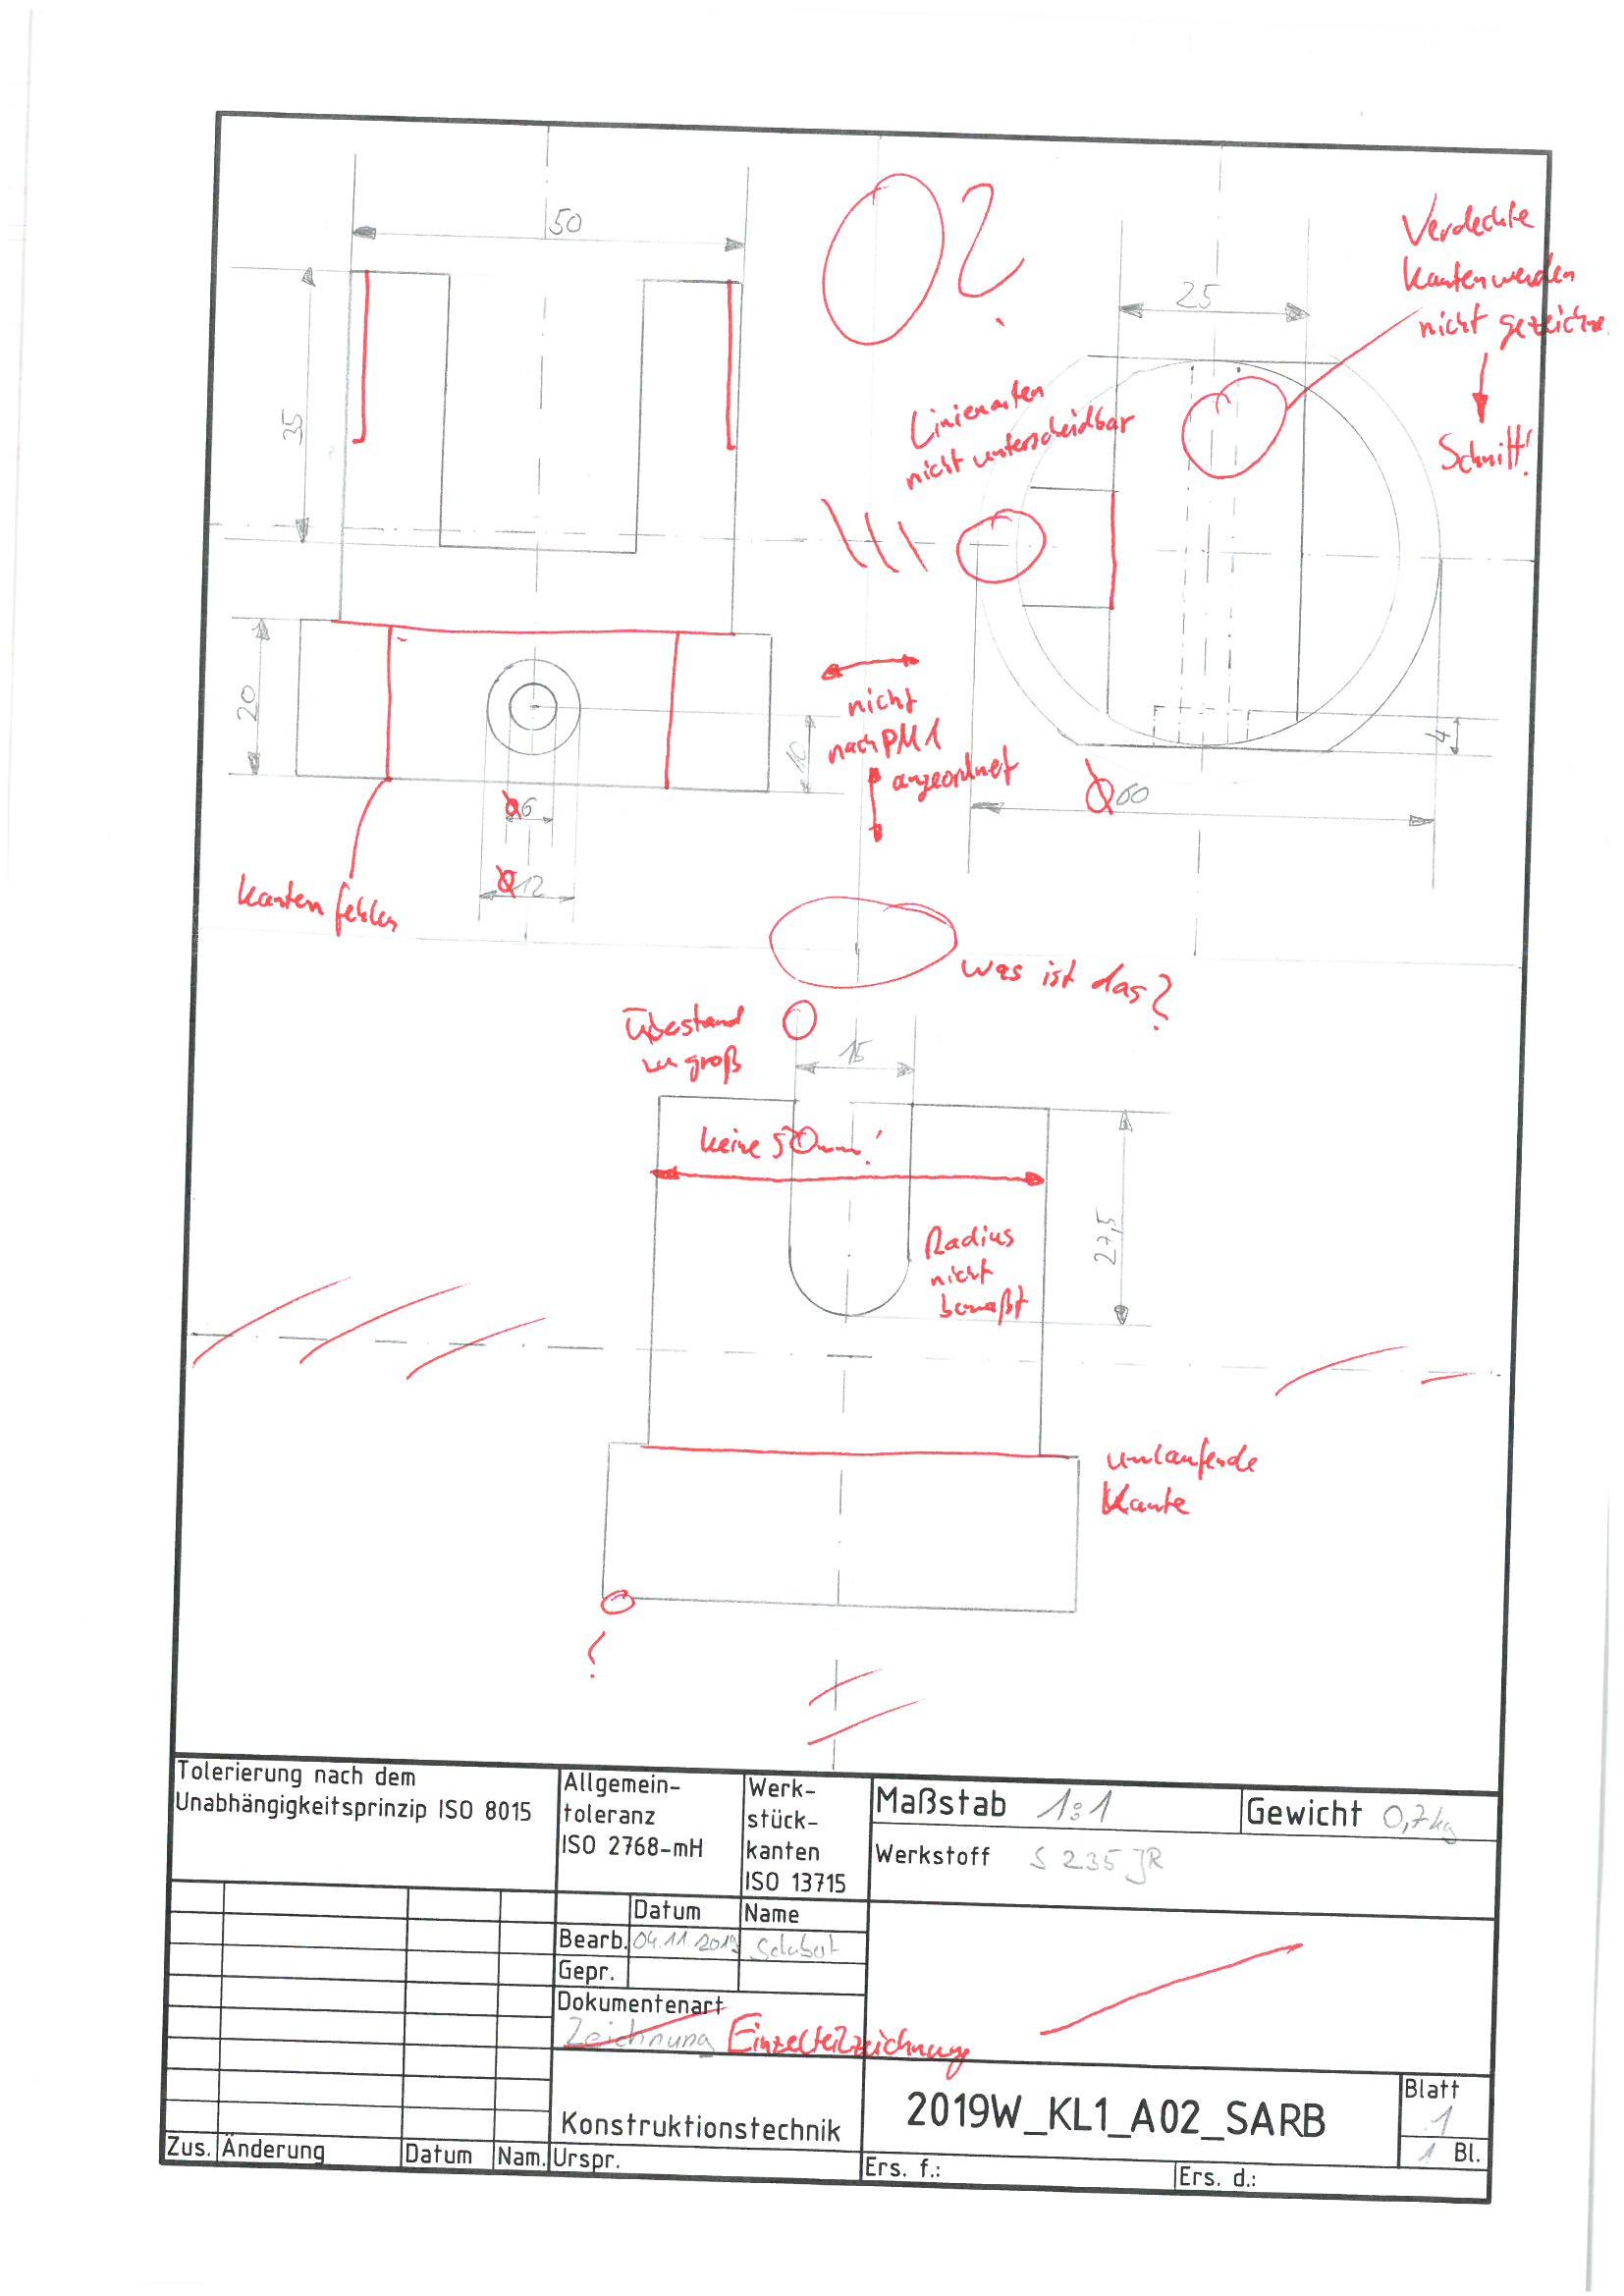 50
O?
Verdeckte
Kanten werden
nicht gezeichn.
Schnitt!
25
Linienarten
nicht unterscheidbar
35
20
10
nicht
nach PM1
angeordnet
4
Ø60
Ø6
Ø12
Kanten fehlen
was ist das?
Überstand
zu groß
15
keine 50mm!
27,5
Radius
nicht
bemaßt
umlaufende
Kante
?
Tolerierung nach dem
Unabhängigkeitsprinzip ISO 8015
Allgemein-
toleranz
ISO 2768-mH
Werk-
stück-
kanten
ISO 13715
Maßstab 1:1
Gewicht 0,7kg
Werkstoff S 235 JR
Datum Name
Bearb. 04.11.2019
Gepr.
Dokumentenart
Zeichnung Einzelteilzeichnung
Konstruktionstechnik
2019W_KL1_A02_SARB
Blatt
1
1 Bl.
Zus. Änderung Datum Nam. Urspr. Ers. f.: Ers. d.: